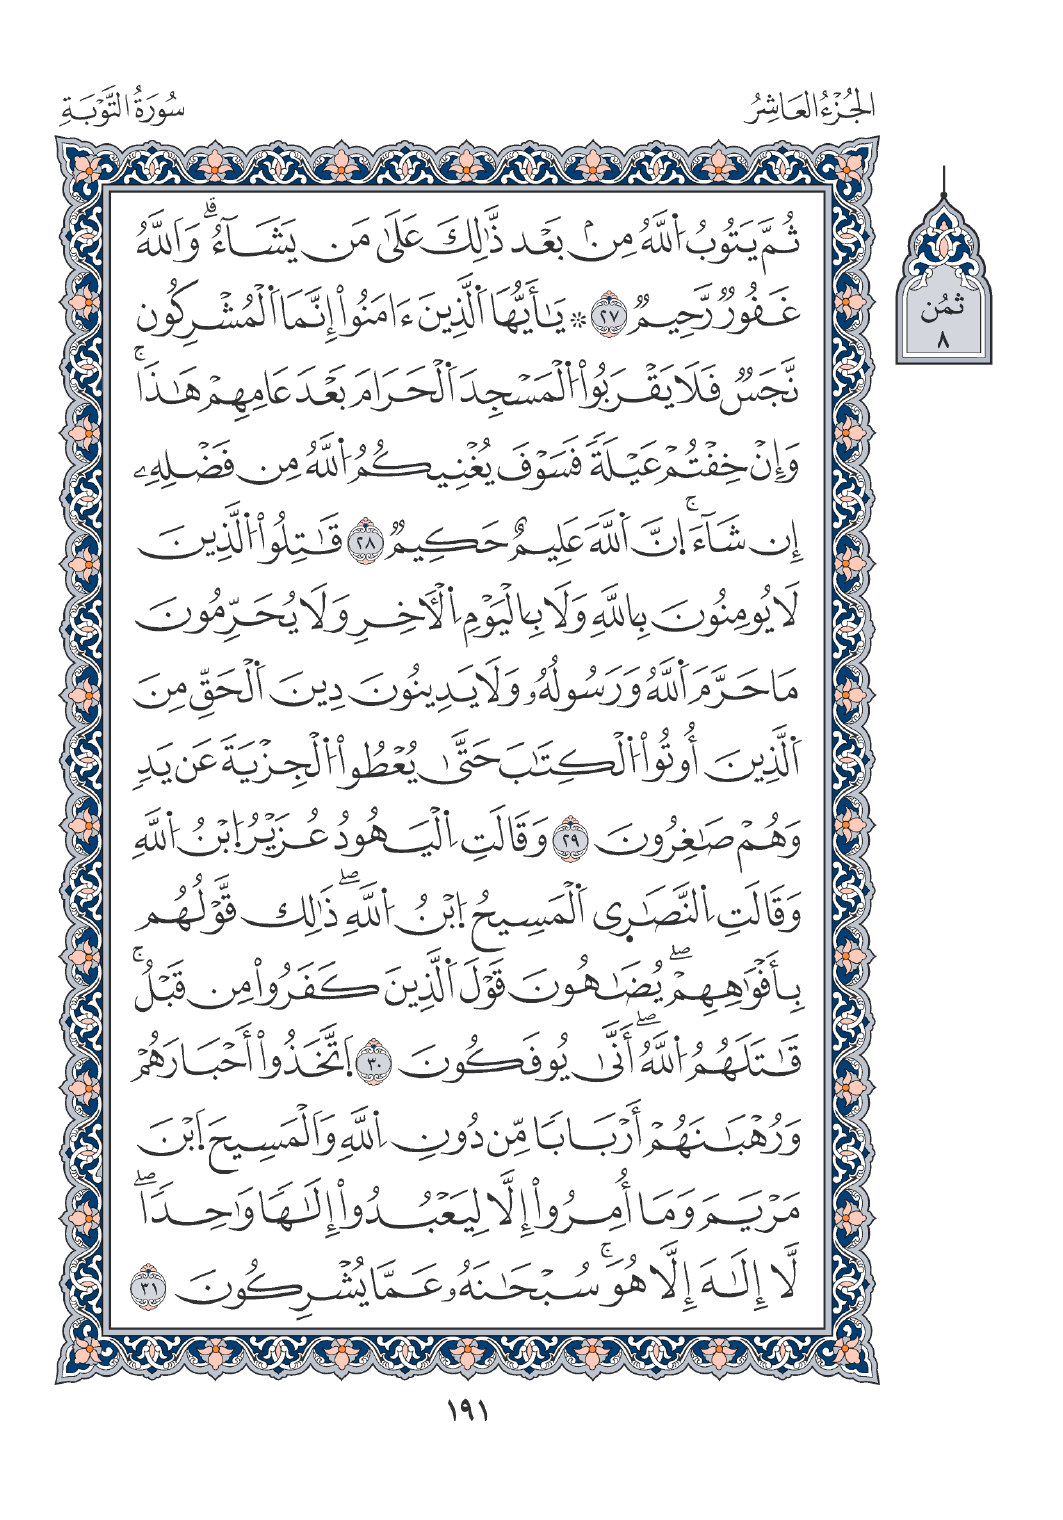 الجُزْءُ العَاشِرُ
سُورَةُ التَّوْبَةِ
ثُمَّ يَتُوبُ اُ۬للَّهُ مِنۢ بَعْدِ ذَّٰلِكَ عَلَىٰ مَن يَشَآءُۗ وَاللَّهُ
غَفُورٌ رَّحِيمٌ ٢٧ ۞ يَٰٓأَيُّهَا اَ۬لَّذِينَ ءَامَنُوٓاْ إِنَّمَا اَ۬لْمُشْرِكُون
نَّجَسٌ فَلَا يَقْرَبُواْ اُ۬لْمَسْجِدَ اَ۬لْحَرَام بَعْدَ عَامِهِمْ هَٰذَاۚ
وَإِنْ خِفْتُمْ عَيْلَةً فَسَوْفَ يُغْنِيكُمُ اُ۬للَّهُ مِن فَضْلِهِۦٓ
إِن شَآءَۚ اِ۪نَّ اَ۬للَّهَ عَلِيمٌ حَكِيمٌ ٢٨ قَٰتِلُواْ اُ۬لَّذِينَ
لَا يُومِنُونَ بِاللَّهِ وَلَا بِالْيَوْمِ اِ۬لْأٓخِرِ وَلَا يُحَرِّمُونَ
مَا حَرَّمَ اَ۬للَّهُ وَرَسُولُهُۥ وَلَا يَدِينُونَ دِينَ اَ۬لْحَقِّ مِنَ
اَ۬لَّذِينَ أُوتُواْ اُ۬لْكِتَٰبَ حَتَّىٰ يُعْطُواْ اُ۬لْجِزْيَةَ عَن يَدٍ
وَهُمْ صَٰغِرُونَ ٢٩ وَقَالَتِ اِ۬لْيَهُودُ عُزَيْرُ اُ۪بْنُ اُ۬للَّهِ
وَقَالَتِ اِ۬لنَّصَٰرَى اَ۬لْمَسِيحُ اُ۪بْنُ اُ۬للَّهِۖ ذَٰلِك قَّوْلُهُم
بِأَفْوَٰهِهِمْۖ يُضَٰهُونَ قَوْلَ اَ۬لَّذِينَ كَفَرُواْ مِن قَبْلُۚ
قَٰتَلَهُمُ اُ۬للَّهُۖ أَنَّىٰ يُوفَكُونَ ٣٠ اَ۪تَّخَذُوٓاْ أَحْبَارَهُمْ
وَرُهْبَٰنَهُمْ أَرْبَابًا مِّن دُونِ اِ۬للَّهِ وَالْمَسِيحَ اَ۪بْنَ
مَرْيَمَ وَمَآ أُمِرُوٓاْ إِلَّا لِيَعْبُدُوٓاْ إِلَٰهًا وَٰحِدًاۖ
لَّآ إِلَٰهَ إِلَّا هُوَۚ سُبْحَٰنَهُۥ عَمَّا يُشْرِكُونَ ٣١
ثُمُن
٨
١٩١